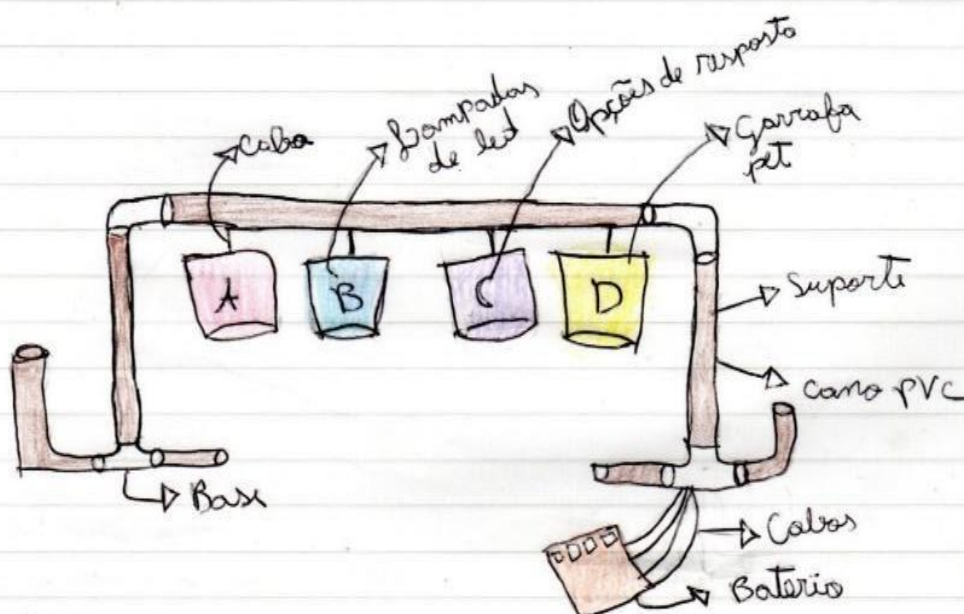 Cabo
Lampadas
de led
Opções de resposta
Garrafa
pet
A
B
C
D
Suporte
Cano PVC
Base
Cabos
Bateria